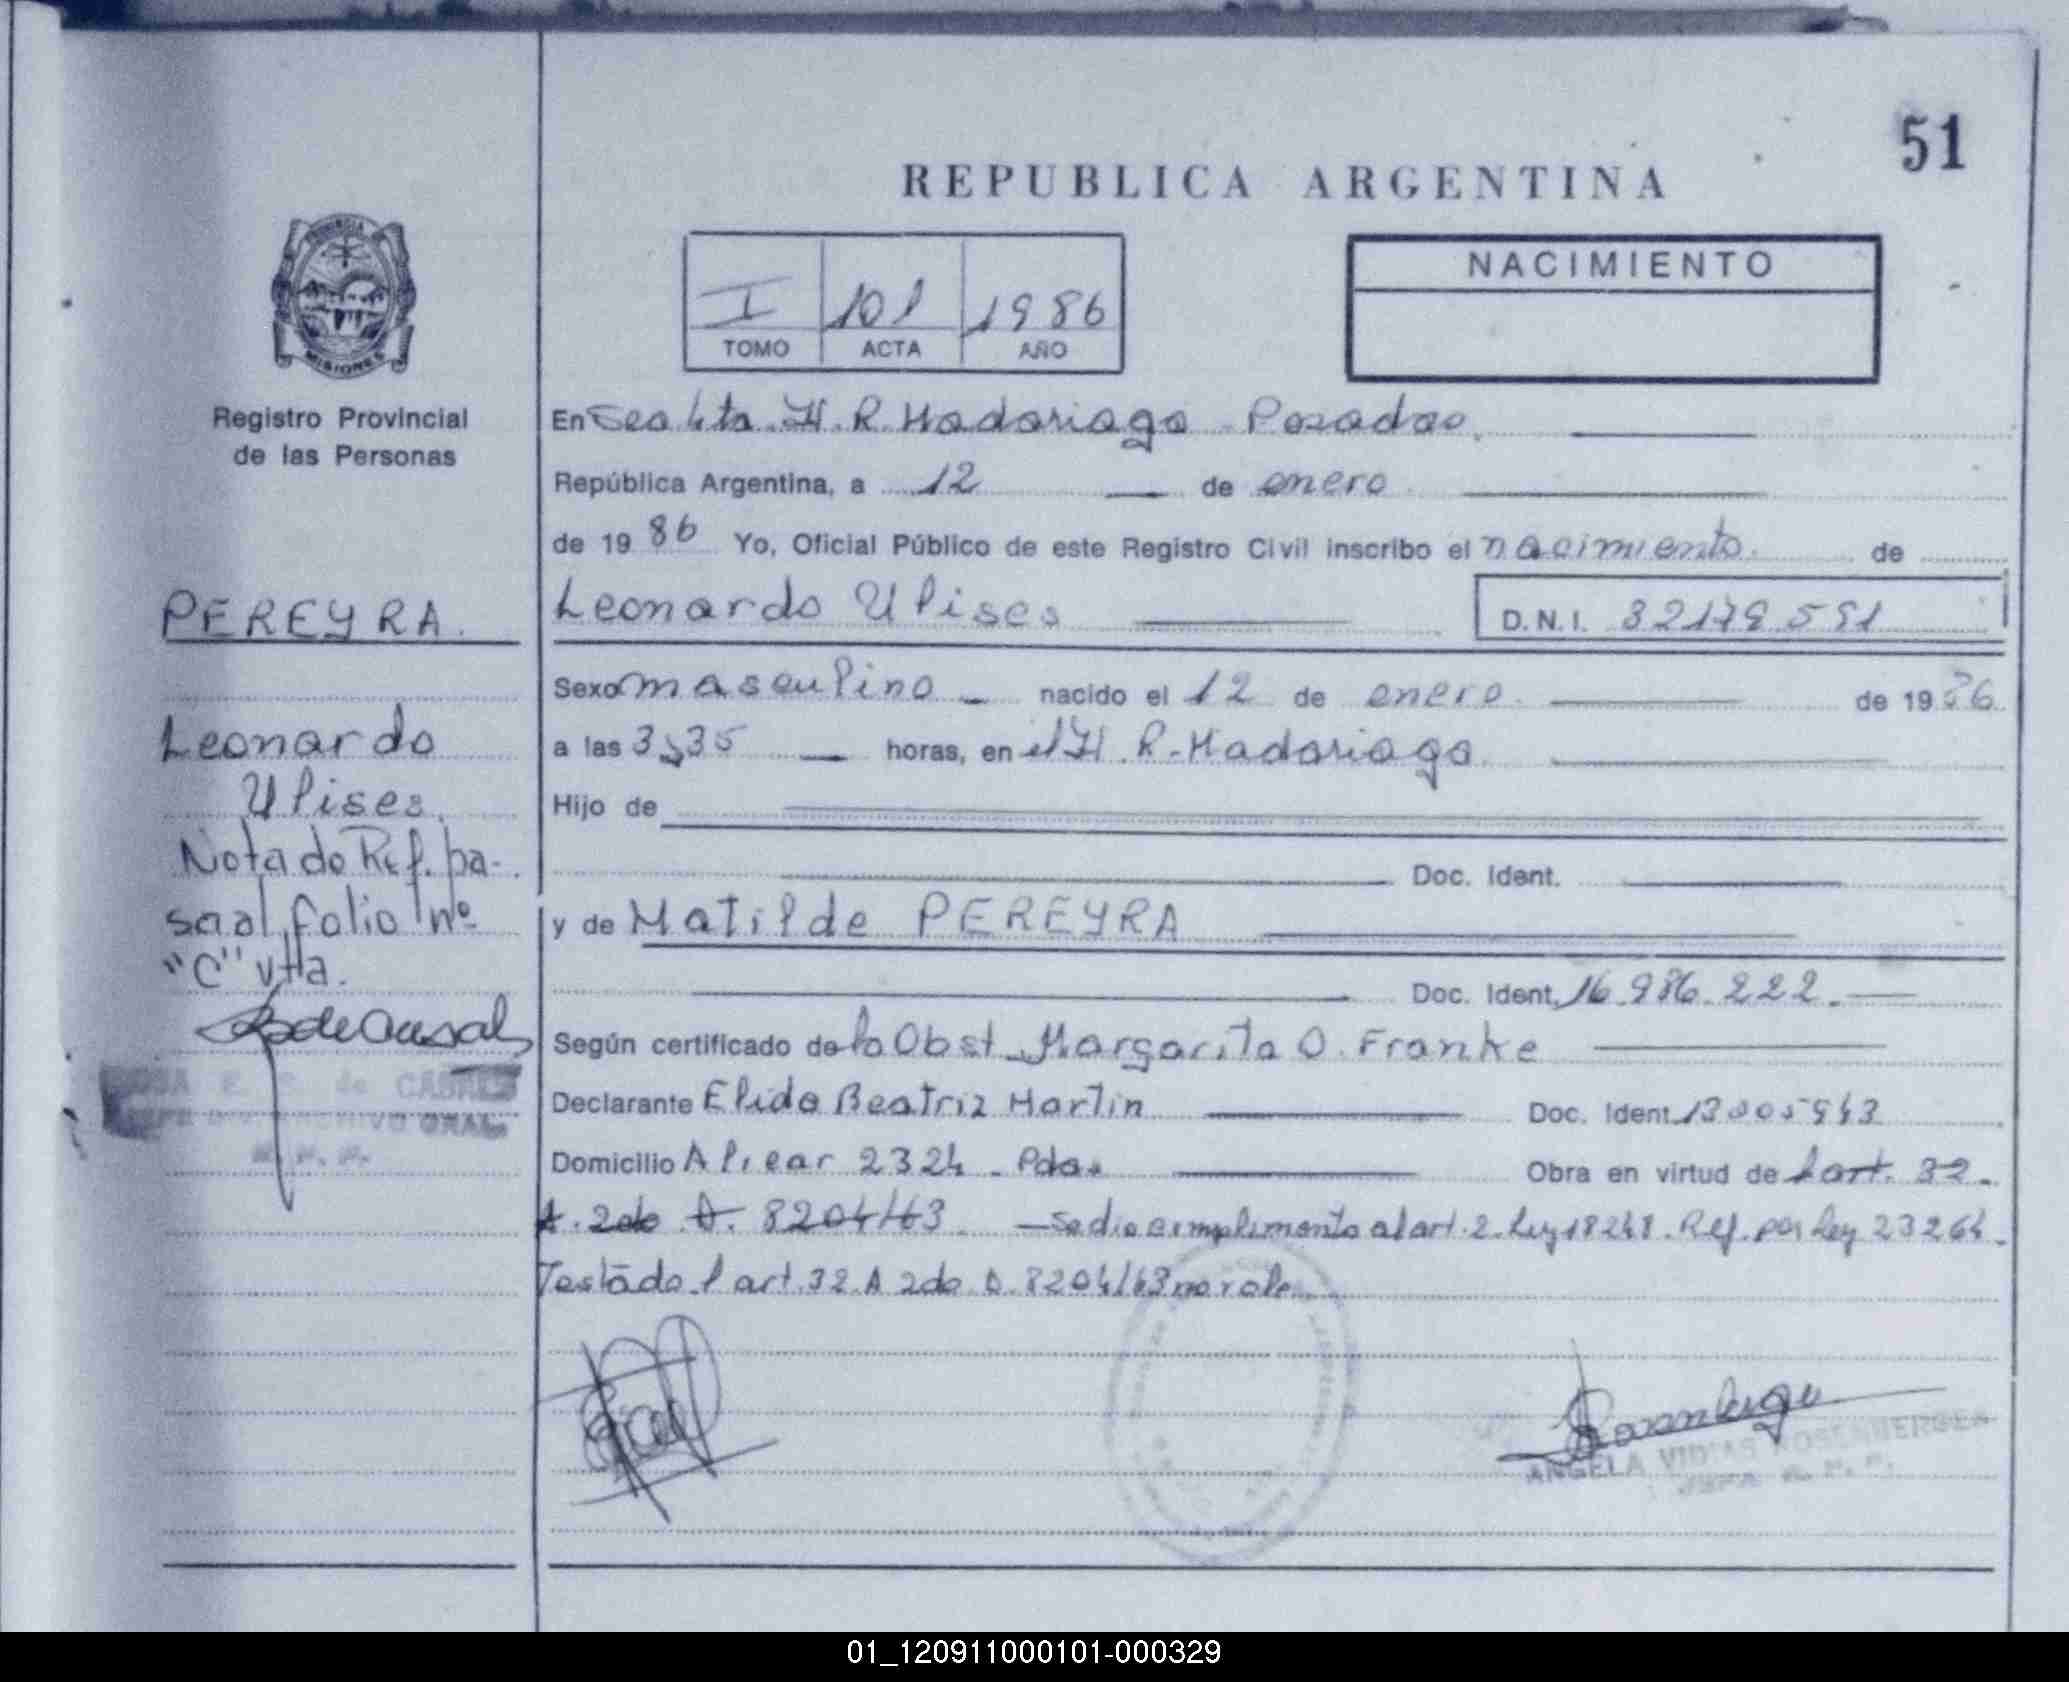 51
REPUBLICA ARGENTINA
I 101 1986
TOMO ACTA AÑO
NACIMIENTO
MISIONES
Registro Provincial
de las Personas
En H. R. Madariaga Posadas.
República Argentina, a 12 de enero
de 1986 Yo, Oficial Público de este Registro Civil inscribo el nacimiento de
PEREYRA.
Leonardo Ulises
D.N.I.
Sexo masculino nacido el 12 de enero de 1986
Leonardo
Ulises
a las 3,35 horas, en el H. R. Madariaga
Hijo de
Nota de Ref. pa-
Doc. Ident.
sa al folio nº
y de Matilde PEREYRA
"C" vta.
Doc. Ident. 16.986.222.
Según certificado de la Obst. Margarita O. Franke
de
ARCHIVO GRAL.
Declarante Elida Beatriz Martin Doc. Ident.
Domicilio Alvear 2324 - Pdas Obra en virtud de l art. 32.
A. 2do D. 8204/63. - Se dio cumplimento al art. 2. Ley 18248. Ref. por Ley 23264.
Testado l art. 32 A 2do D. 8204/63 no vale.
ANGELA ROSENBERGER
JEFA R. P. P.
01_120911000101-000329